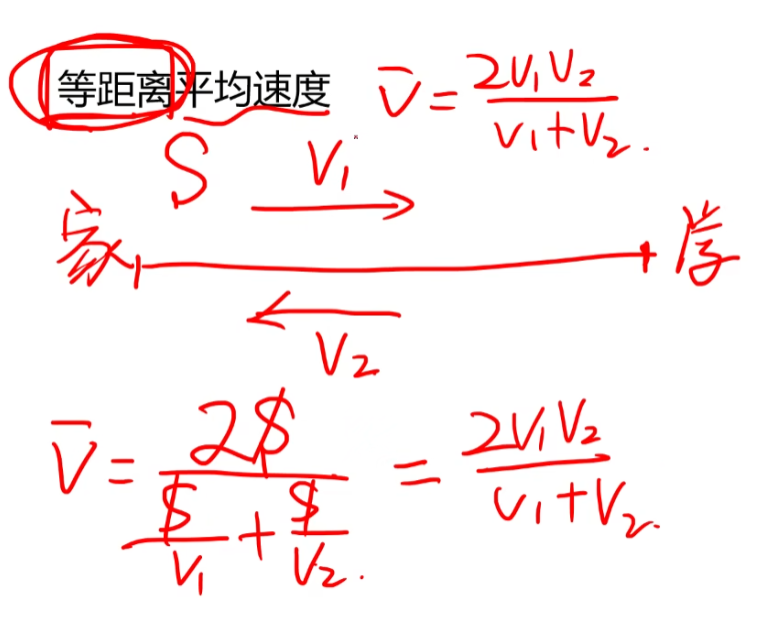 等距离平均速度 V̄ = 2V₁V₂ / (V₁+V₂).
S V₁
家 学
V₂
V̄ = 2S / (S/V₁ + S/V₂.) = 2V₁V₂ / (V₁+V₂.)